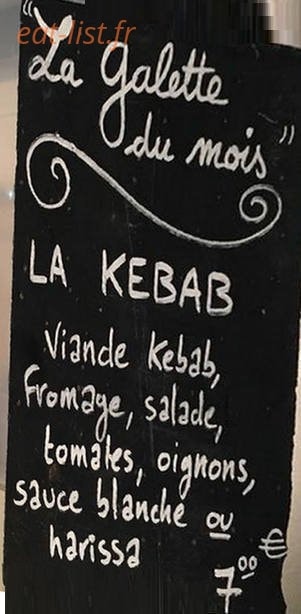 eat-list.fr
"La Galette
du mois"
LA KEBAB
Viande Kebab,
Fromage, salade,
tomates, oignons,
sauce blanche ou
harissa
7,00 €